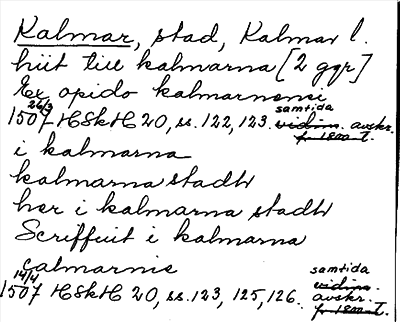 Kalmar, stad, Kalmar l.
hiit till kalmarna [2 ggr]
Ex opido kalmarnensi
26/3 samtida
1507 HSkH 20, ss. 122, 123. vidim. avskr.
fr. 1800-T.
i kalmarna
kalmarna stadh
her i kalmarna stadh
Scriffuit i kalmarna
calmarnis
14/4 samtida
vidim.
1507 HSkH 20, ss. 123, 125, 126. avskr.
fr. 1800-T.